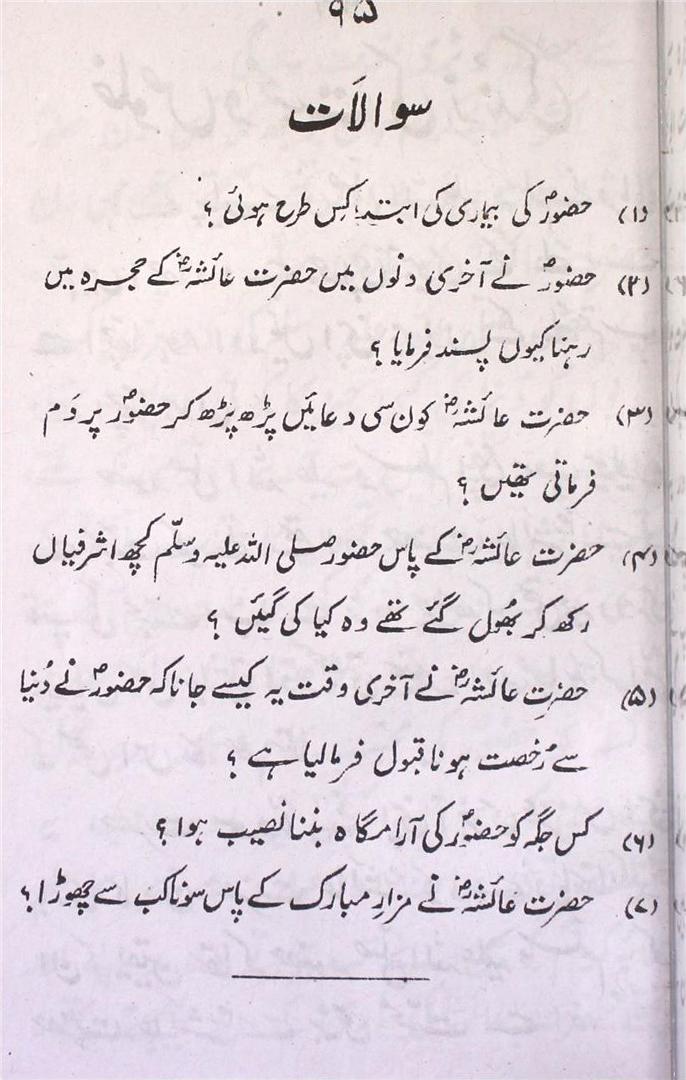 ۹۵
سوالات
(۱) حضورؐ کی بیماری کی ابتدا کِس طرح ہوئی ؟
(۲) حضورؐ نے آخری دنوں میں حضرت عائشہؓ کے حجرہ میں
رہنا کیوں پسند فرمایا ؟
(۳) حضرت عائشہؓ کون سی دعائیں پڑھ پڑھ کر حضورؐ پر دَم
فرماتی تھیں ؟
(۴) حضرت عائشہؓ کے پاس حضور صلی اللہ علیہ وسلّم کچھ اشرفیاں
رکھ کر بھُول گئے تھے وہ کیا کی گئیں ؟
(۵) حضرتِ عائشہؓ نے آخری وقت یہ کیسے جانا کہ حضورؐ نے دُنیا
سے رُخصت ہونا قبول فرمالیا ہے ؟
(۶) کس جگہ کو حضورؐ کی آرام گاہ بننا نصیب ہوا ؟
(۷) حضرت عائشہؓ نے مزارِ مبارک کے پاس سونا کب سے چھوڑا ؟